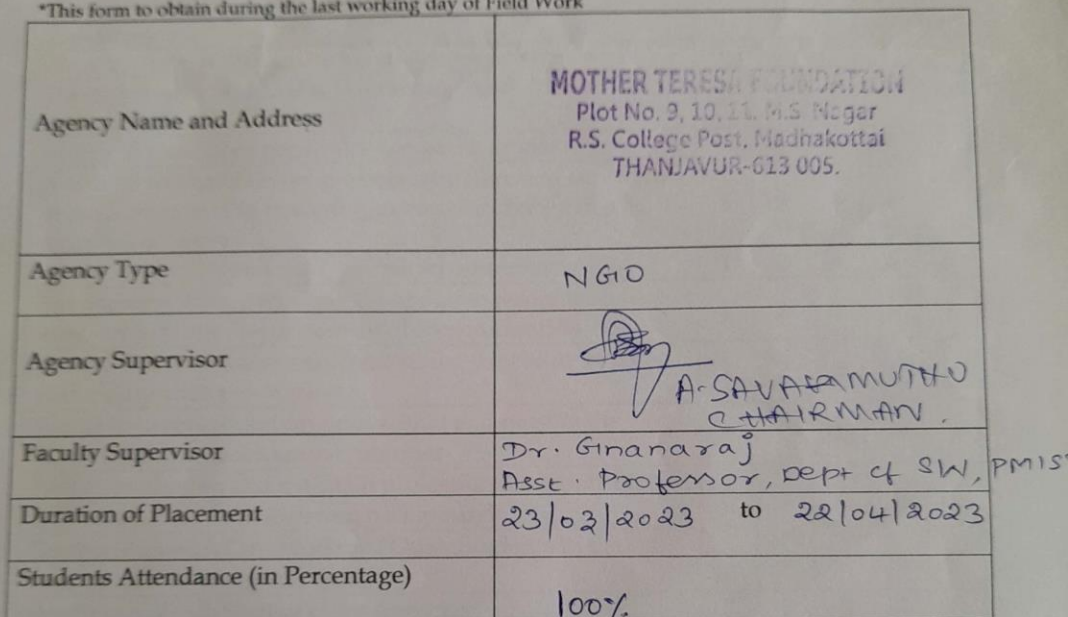 *This form to obtain during the last working day of Field Work
Agency Name and Address
MOTHER TERESA FOUNDATION
Plot No. 9, 10, 11. M.S. Nagar
R.S. College Post, Madhakottai
THANJAVUR-613 005.
Agency Type
NGO
Agency Supervisor
A. 
CHAIRMAN.
Faculty Supervisor
Dr. Gnanaraj
Asst. Professor, Dept of SW, PMIS
Duration of Placement
23/03/2023 to 22/04/2023
Students Attendance (in Percentage)
100%